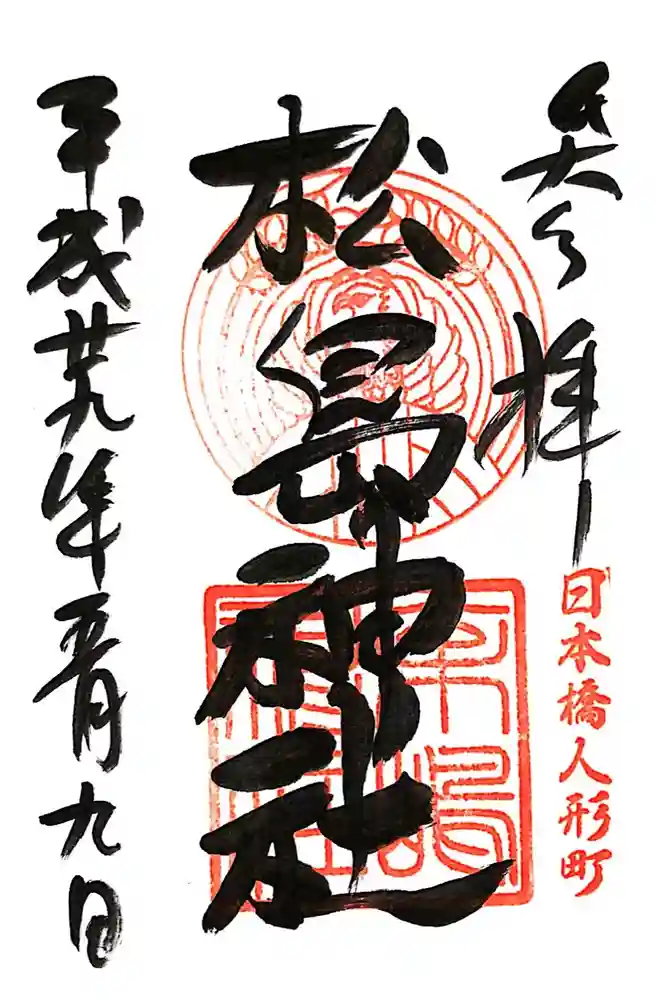 参拝
日本橋人形町
松島神社
平成廿九年五月九日